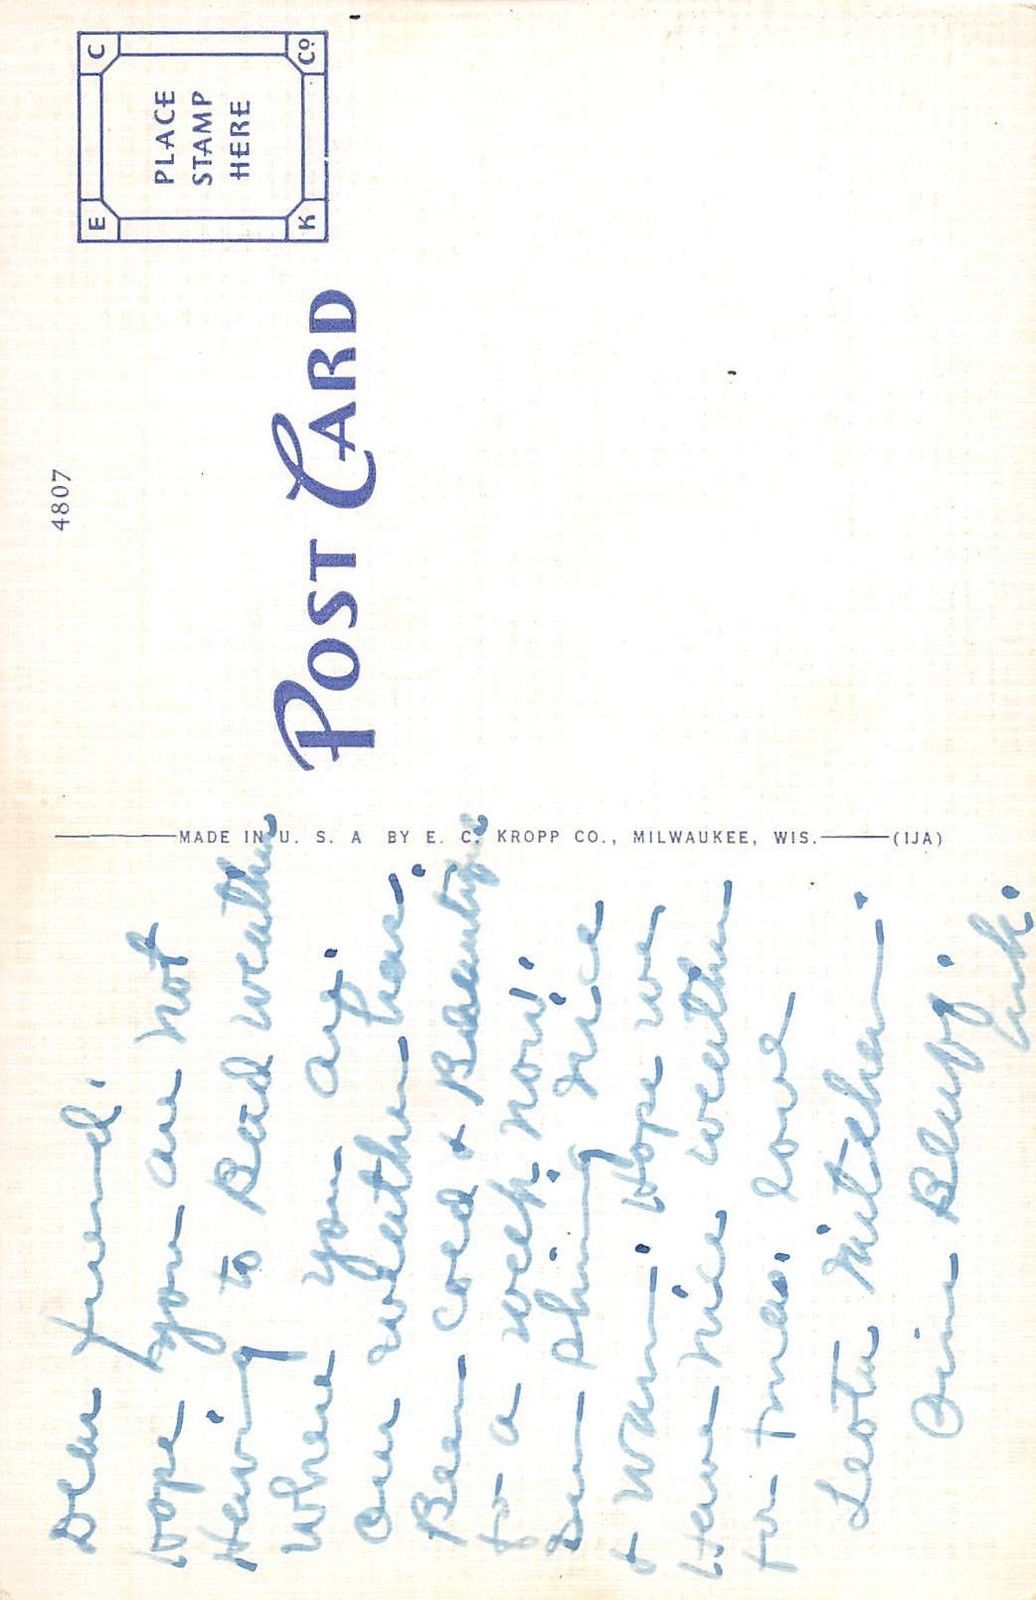 Dear friend.
Hope you are not
Having to Bad weather
Where you are.
Our weather has.
Been Coed & Beautiful
for a week now.
Sun shining Nice
& Warm. Hope we
Have Nice weather
for Xmas. Love
Leota Mitchem.
Pine Bluff.
Ark.
4807
POST CARD
E C K Co
PLACE
STAMP
HERE
MADE IN U. S. A BY E. C. KROPP CO., MILWAUKEE, WIS. (IJA)